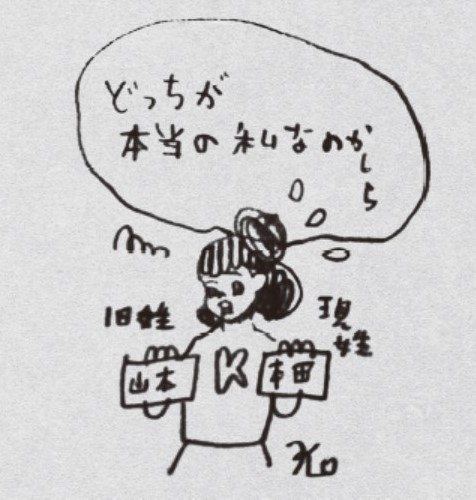 どっちが
本当の私なのかしら
旧姓
現姓
山本
K
本田